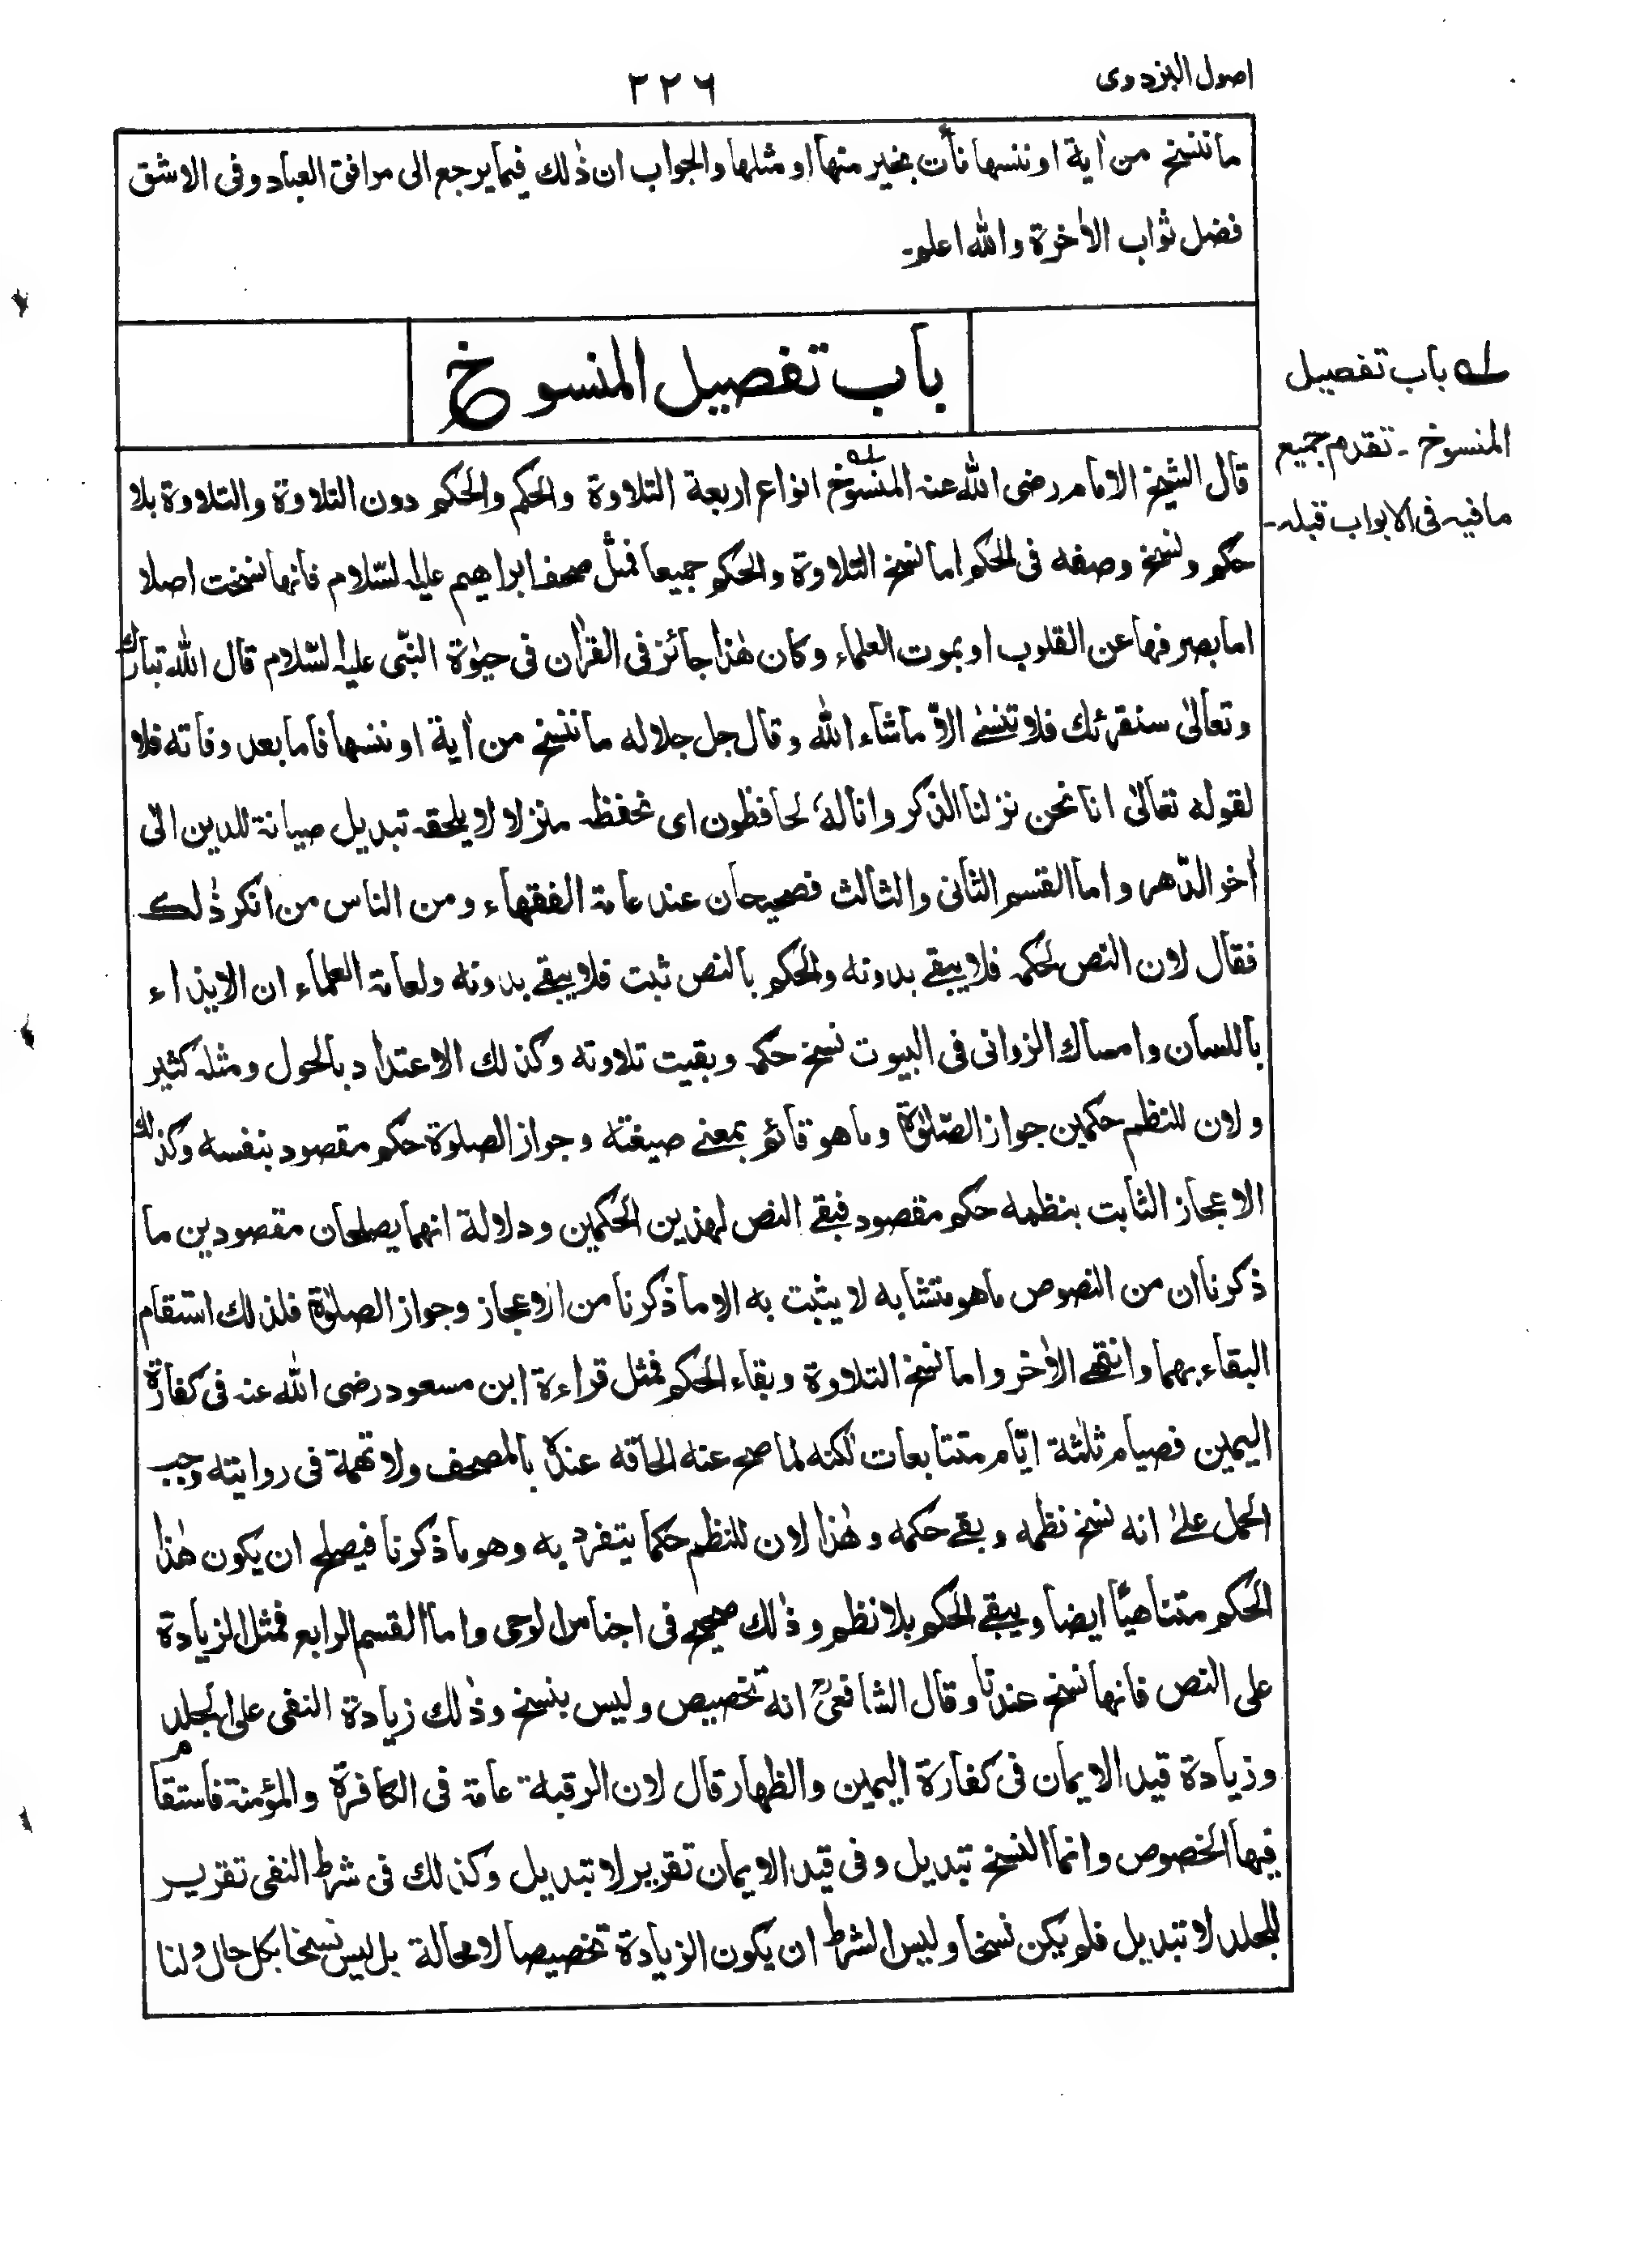 اصول البزدوی
٢٢٦
ما ننسخ من اٰية او ننسها نأت بخير منها او مثلها والجواب ان ذٰلك فيما يرجع الى مرافق العباد وفى الاشق
فضل ثواب الاٰخرة والله اعلم۔
باب تفصيل المنسوخ
قال الشيخ الامام رضى الله عنه المنسوخ انواع اربعة التلاوة والحكم والحكم دون التلاوة والتلاوة بلا
حكم ونسخ وصفه فى الحكم اما نسخ التلاوة والحكم جميعا فمثل صحف ابراهيم عليه السّلام فانها نسخت اصلا
اما بصرفها عن القلوب او بموت العلماء وكان هٰذا جائز فى القراٰن فى حيوٰة النبّى عليه السّلام قال الله تبارك
وتعالىٰ سنقرئك فلا تنسىٰ الاّ ما شاء الله وقال جل جلاله ما ننسخ من اٰية او ننسها فاما بعد وفاته فلا
لقوله تعالىٰ انا نحن نزلنا الذكر وانا لهٗ لحافظون اى نحفظه منزلا لا يلحقه تبديل صيانة للدين الىٰ
اٰخر الدّهر واما القسم الثانى والثالث فصحيحان عند عامة الفقهاء ومن الناس من انكر ذٰلك
فقال لان النص لحكمه فلا يبقى بدونه والحكم بالنص ثبت فلا يبقى بدونه ولعامة العلماء ان الايذاء
باللسان وامساك الزوانى فى البيوت نسخ حكمه وبقيت تلاوته وكذلك الاعتداد بالحول ومثله كثير
ولان للنظم حكمين جواز الصّلوٰة وما هو قائم بمعنى صيغته وجواز الصلوة حكم مقصود بنفسه وكذلك
الاعجاز الثابت بنظمه حكم مقصود فبقى النص لهذين الحكمين ودلالة انهما يصلحان مقصودين ما
ذكرنا ان من النصوص ما هو متشابه لا يثبت به الا ما ذكرنا من الاعجاز وجواز الصلوٰة فلذلك استقام
البقاء بهما وانتهى الاٰخر واما نسخ التلاوة وبقاء الحكم فمثل قراءة ابن مسعود رضى الله عنه فى كفارة
اليمين فصيام ثلٰثة ايّام متتابعات لٰكنه لما صح عنه الحاقه عنده بالمصحف ولا تهمة فى روايته وجب
الحمل علىٰ انه نسخ نظمه وبقى حكمه وهٰذا لان للنظم حكما يتفرد به وهو ما ذكرنا فيصلح ان يكون هٰذا
الحكم متناهيًا ايضا ويبقى الحكم بلا نظم وذٰلك صحيح فى اجناس الوحى واما القسم الرابع فمثل الزيادة
على النص فانها نسخ عندنا وقال الشافعىؒ انه تخصيص وليس بنسخ وذٰلك زيادة النفى على الجلد
وزيادة قيد الايمان فى كفارة اليمين والظهار قال لان الرقبة عامة فى الكافرة والمؤمنة فاستقام
فيها الخصوص وانما النسخ تبديل وفى قيد الايمان تقرير لا تبديل وكذلك فى شرط النفى تقرير
للجلد لا تبديل فلم يكن نسخا وليس الشرط ان يكون الزيادة تخصيصا لا محالة بل ليس نسخا بكل حال ولنا
لہ باب تفصيل
المنسوخ ۔ تقدم جميع
ما فيه فى الابواب قبله۔